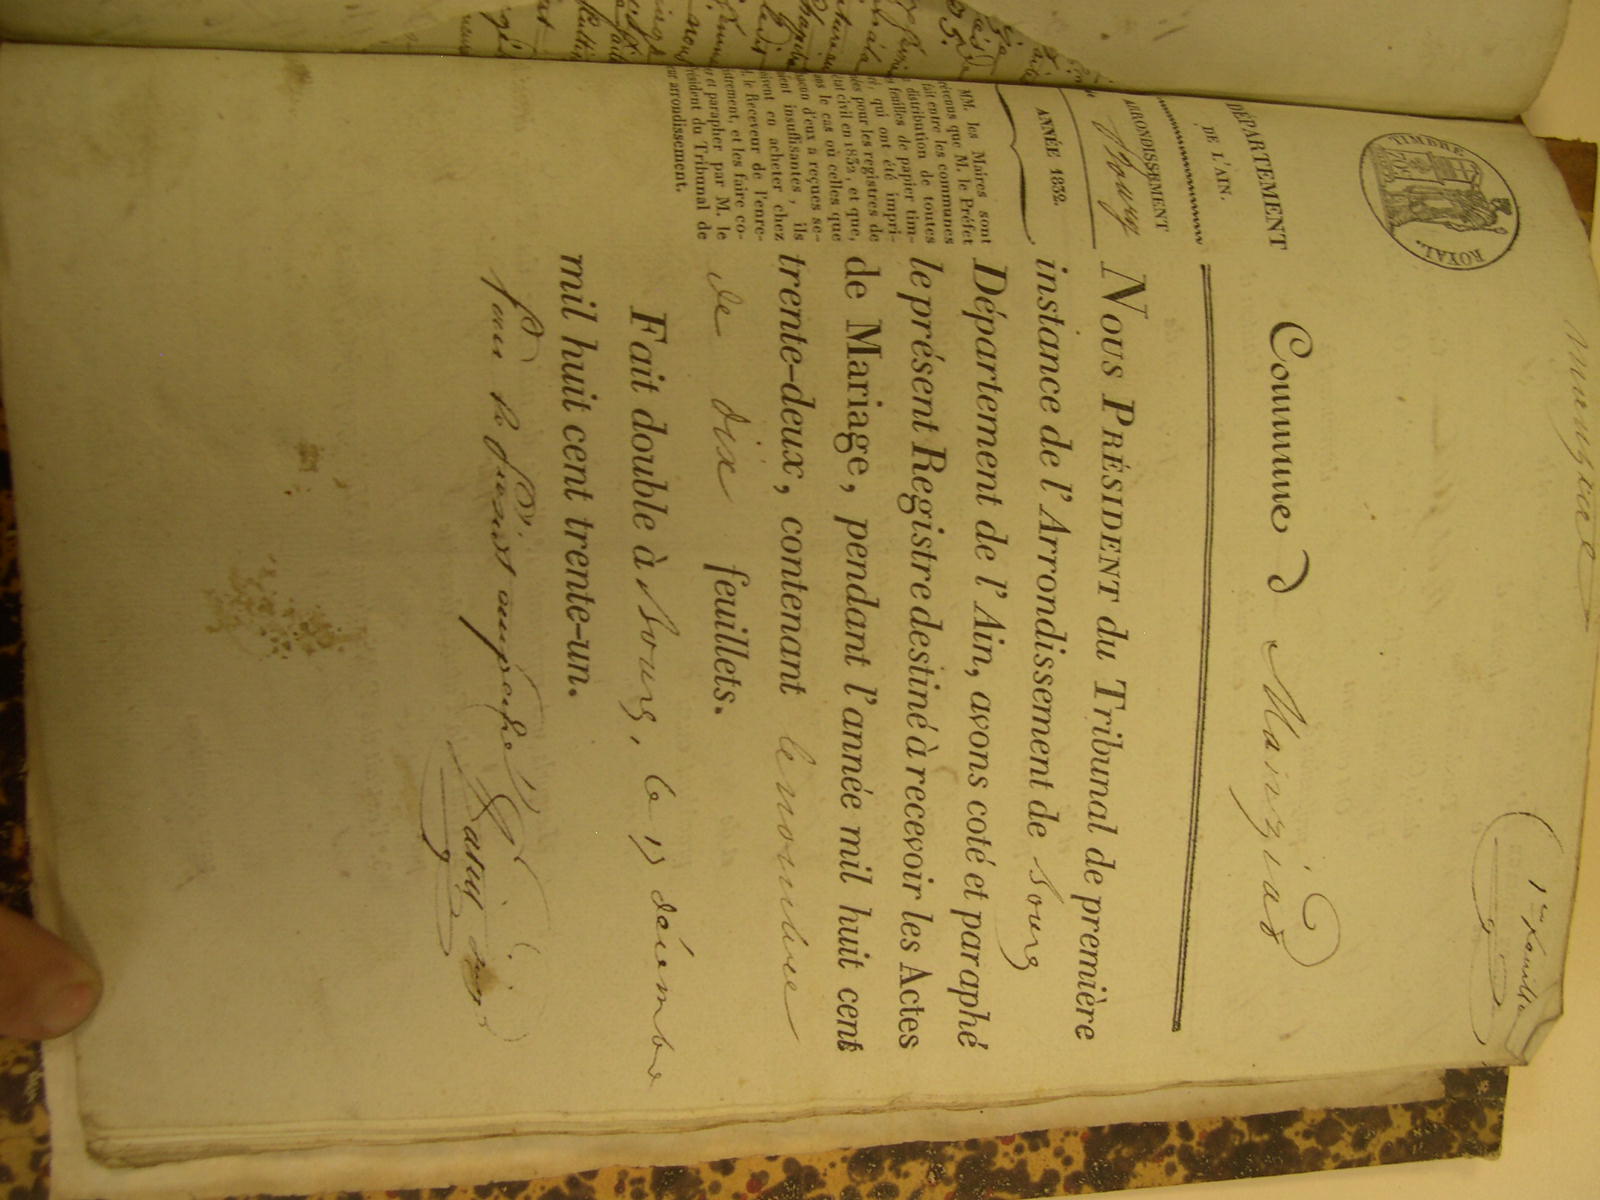 mariage
1er feuillet
TIMBRE
ROYAL
DÉPARTEMENT
DE L'AIN.
ARRONDISSEMENT
Bourg
ANNÉE 1832.
MM. les Maires sont
prévenus que M. le Préfet
fait entre les communes
distribution de toutes
les feuilles de papier tim-
bré, qui ont été impri-
mées pour les registres de
l'état civil en 1832, et que,
dans le cas où celles que
chacun d'eux a reçues se-
raient insuffisantes, ils
doivent en acheter chez
M. le Receveur de l'enre-
gistrement, et les faire co-
ter et parapher par M. le
Président du Tribunal de
leur arrondissement.
Commune d Marzias
Nous Président du Tribunal de première
instance de l'Arrondissement de Bourg
Département de l'Ain, avons coté et paraphé
le présent Registre destiné à recevoir les Actes
de Mariage, pendant l'année mil huit cent
trente-deux, contenant le nombre
de dix feuillets.
Fait double à Bourg, le 17 décembre
mil huit cent trente-un.
Pour le président empêché